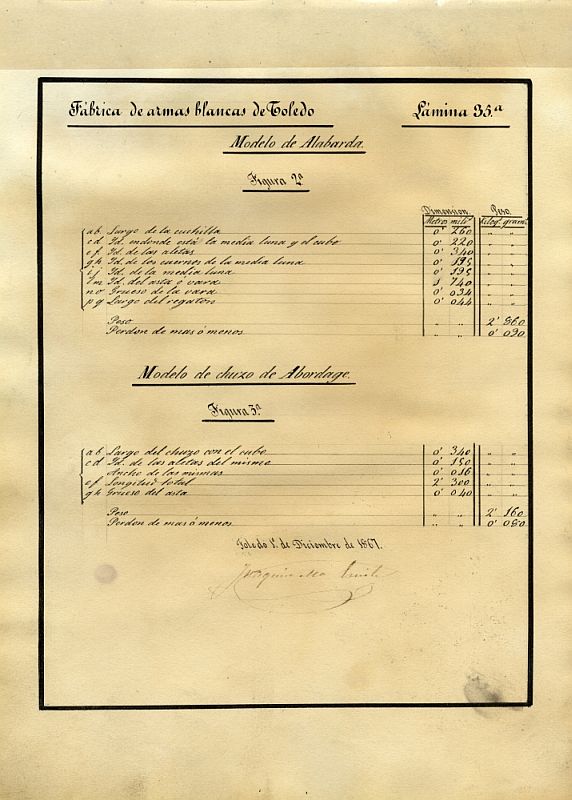 Fábrica de armas blancas de Toledo Lámina 35.ª
Modelo de Alabarda.
Figura 2ª
Dimencion. Peso.
Metros milˢ Kilog. gramˢ
ab Largo de la cuchilla 0' 260 " "
cd Id. endonde está la media luna y el cubo 0' 220 " "
ef Id. de las aletas 0' 340 " "
gh Id. de los cuernos de la media luna 0' 195 " "
ij Id. de la media luna 0' 195 " "
lm Id. del asta ó vara 1' 740 " "
no Grueso de la vara 0' 034 " "
pq Largo del regaton 0' 044 " "
Peso " " 2' 860
Perdon de mas ó menos " " 0' 090
Modelo de chuzo de Abordage.
Figura 3ª
ab Largo del chuzo con el cubo 0' 340 " "
cd Id. de las aletas del mismo 0' 150 " "
Ancho de las mismas 0' 016 " "
ef Longitud total 2' 300 " "
gh Grueso del asta 0' 040 " "
Peso " " 2' 160
Perdon de mas ó menos " " 0' 080
Toledo 1º de Diciembre de 1867.
Joaquin Mª